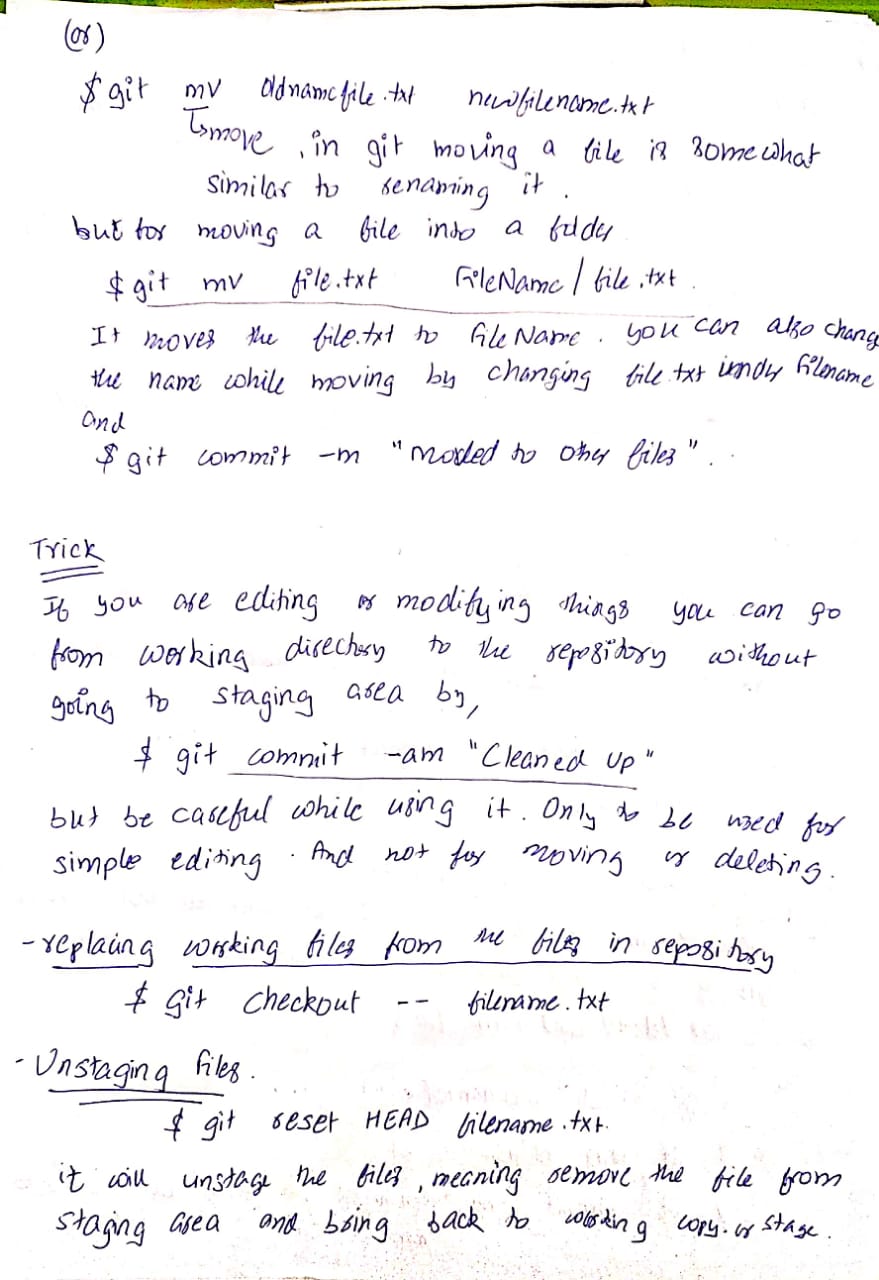 (or)
$ git mv oldnamefile.txt newfilename.txt
↳move, in git moving a file is somewhat
similar to renaming it.
but for moving a file into a folder
$ git mv file.txt FileName/file.txt.
It moves the file.txt to fileName. you can also change
the name while moving by changing file.txt under filename
and
$ git commit -m "moved to other files".
Trick
If you are editing or modifying things you can go
from working directory to the repository without
going to staging area by,
$ git commit -am "Cleaned up"
but be careful while using it. Only to be used for
simple editing. And not for moving or deleting.
- replacing working files from the files in repository
$ git checkout -- filename.txt
- Unstaging files.
$ git reset HEAD filename.txt.
it will unstage the files, meaning remove the file from
staging area and bring back to working copy. or stage.